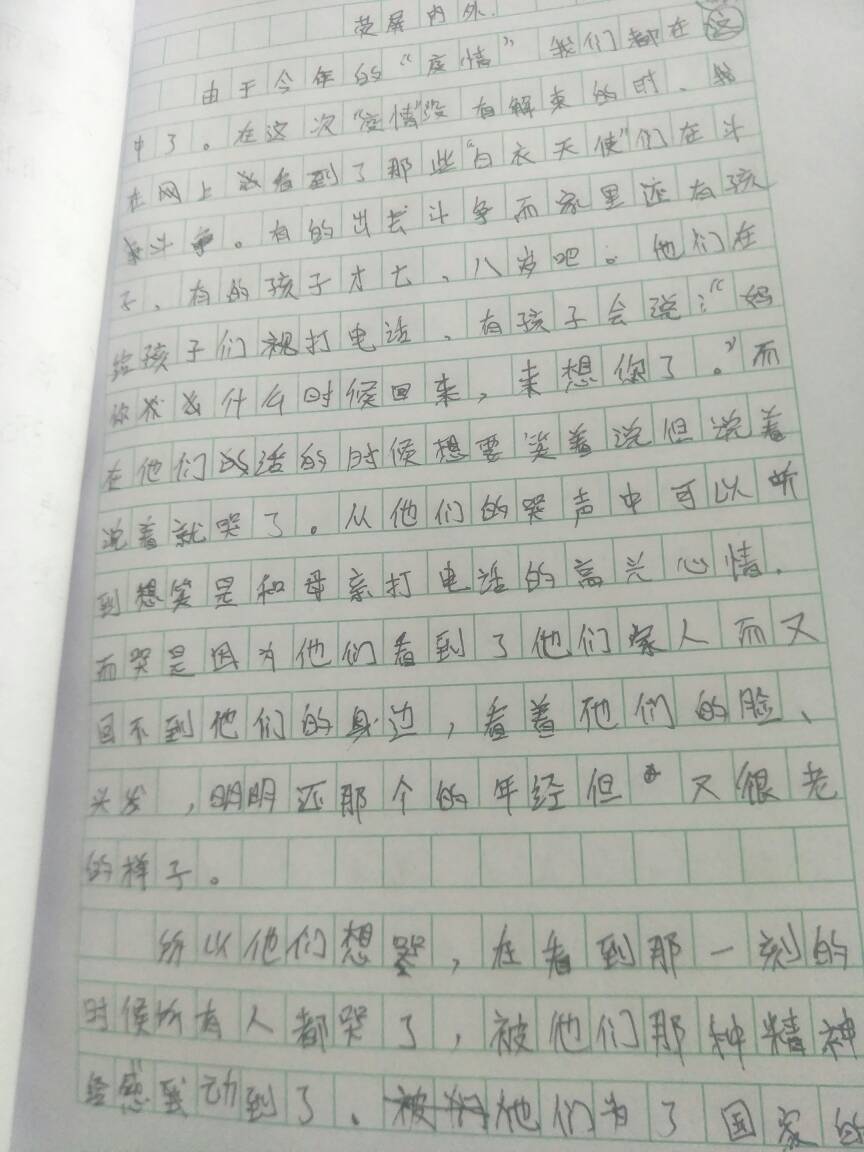 荧屏内外.
由于今年的“疫情”我们都在
中了。在这次“疫情”没有解束的时、我
在网上看到了那些“白衣天使”们在斗
斗争。有的出去斗争而家里还有孩
子、有的孩子才七、八岁吧。他们在
给孩子们视打电话、有孩子会说:“妈
你什么时候回来,来想你了。”而
在他们的话的时候想要笑着说但说着
说着就哭了。从他们的哭声中可以听
到想笑是和母亲打电话的高兴心情.
而哭是因为他们看到了他们家人而又
回不到他们的身边,看着他们的脸、
头发,明明还那个的年经但又很老
的样子。
所以他们想哭,在看到那一刻的
时候所有人都哭了,被他们那种精神
给感动到了。他们为了国家的